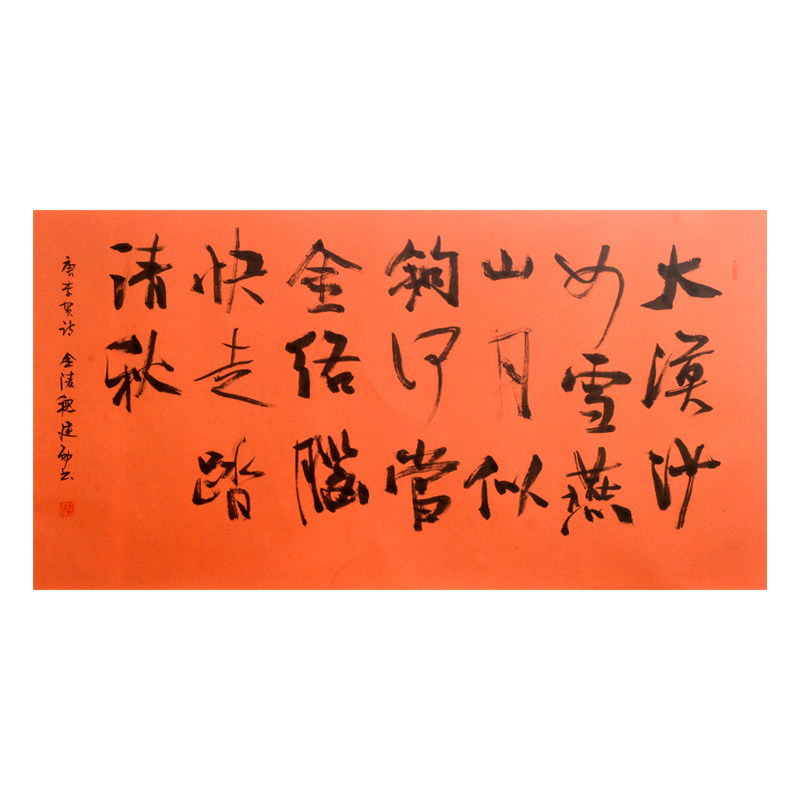 大漠沙
如雪燕
山月似
鉤何當
金络腦
快走踏
清秋
唐李贺诗 金陵魏建勋书